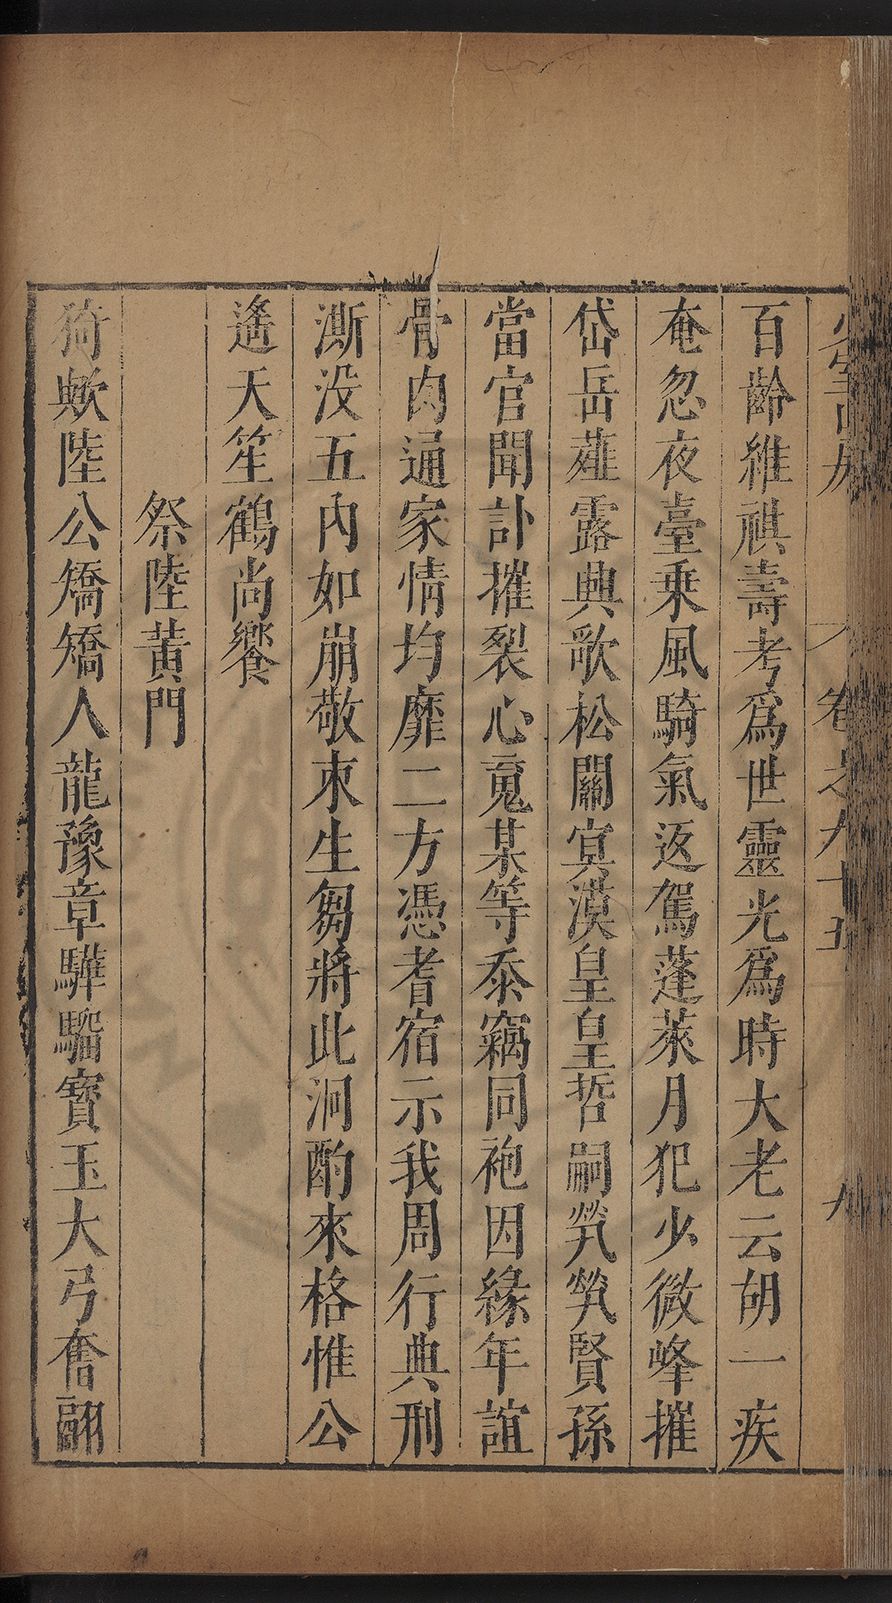 卷之九十五
百齡維祺壽考爲世靈光爲時大老云胡一疾
奄忽夜臺乗風騎氣返駕蓬萊月犯少微峰摧
岱岳薤露興歌松關㝠漠皇皇哲嗣煢煢賢孫
當官聞訃摧裂心䰟某等忝竊同袍因緣年誼
骨肉通家情均靡二方憑耆宿示我周行典刑
澌没五內如崩敬朿生芻將此泂酌來格惟公
遙天笙鶴尚饗
祭陸黃門
猗歟陸公矯矯人龍豫章驊騮寳玉大弓奮翮